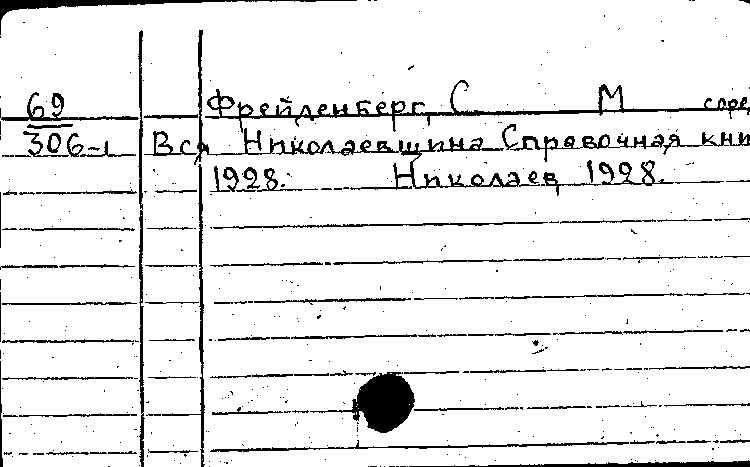 69 Фрейденберг, С М соре
306-1 Вся Николаевщина Справочная кни
1928. Николаев, 1928.